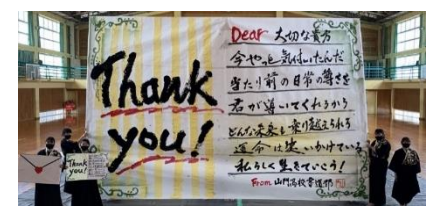 Thank
you!
Dear 大切な貴方
今やっと気付いたんだ
当たり前の日常の尊さを
君が導いてくれるから
どんな未来も乗り越えられる
運命は笑いかけている
私らしく生きていこう!
From 山門高校書道部
Thank
you!